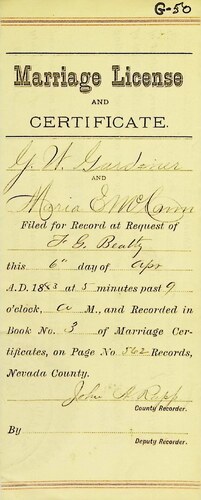 G-50
Marriage License
AND
CERTIFICATE.
G. W. Gardner
AND
Maria E McCann
Filed for Record at Request of
F G. Beatty
this 6" day of Apr
A.D. 1883 at 5 minutes past 9
o'clock, A M., and Recorded in
Book No. 3 of Marriage Cer-
tificates, on Page No 562 Records,
Nevada County.
John A. Rapp
County Recorder.
By
Deputy Recorder.